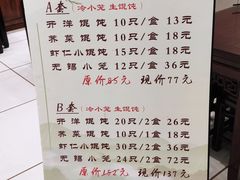 A套（冷小笼 生馄饨）
开洋馄饨 10只/盒 13元
荠菜馄饨 10只/盒 18元
虾仁小馄饨 15只/盒 18元
无锡小笼 12只/盒 36元
原价85元 现价77元
B套（冷小笼 生馄饨）
开洋馄饨 20只/2盒 26元
荠菜馄饨 10只/盒 18元
虾仁小馄饨 30只/2盒 36元
无锡小笼 24只/2盒 72元
原价152元 现价137元